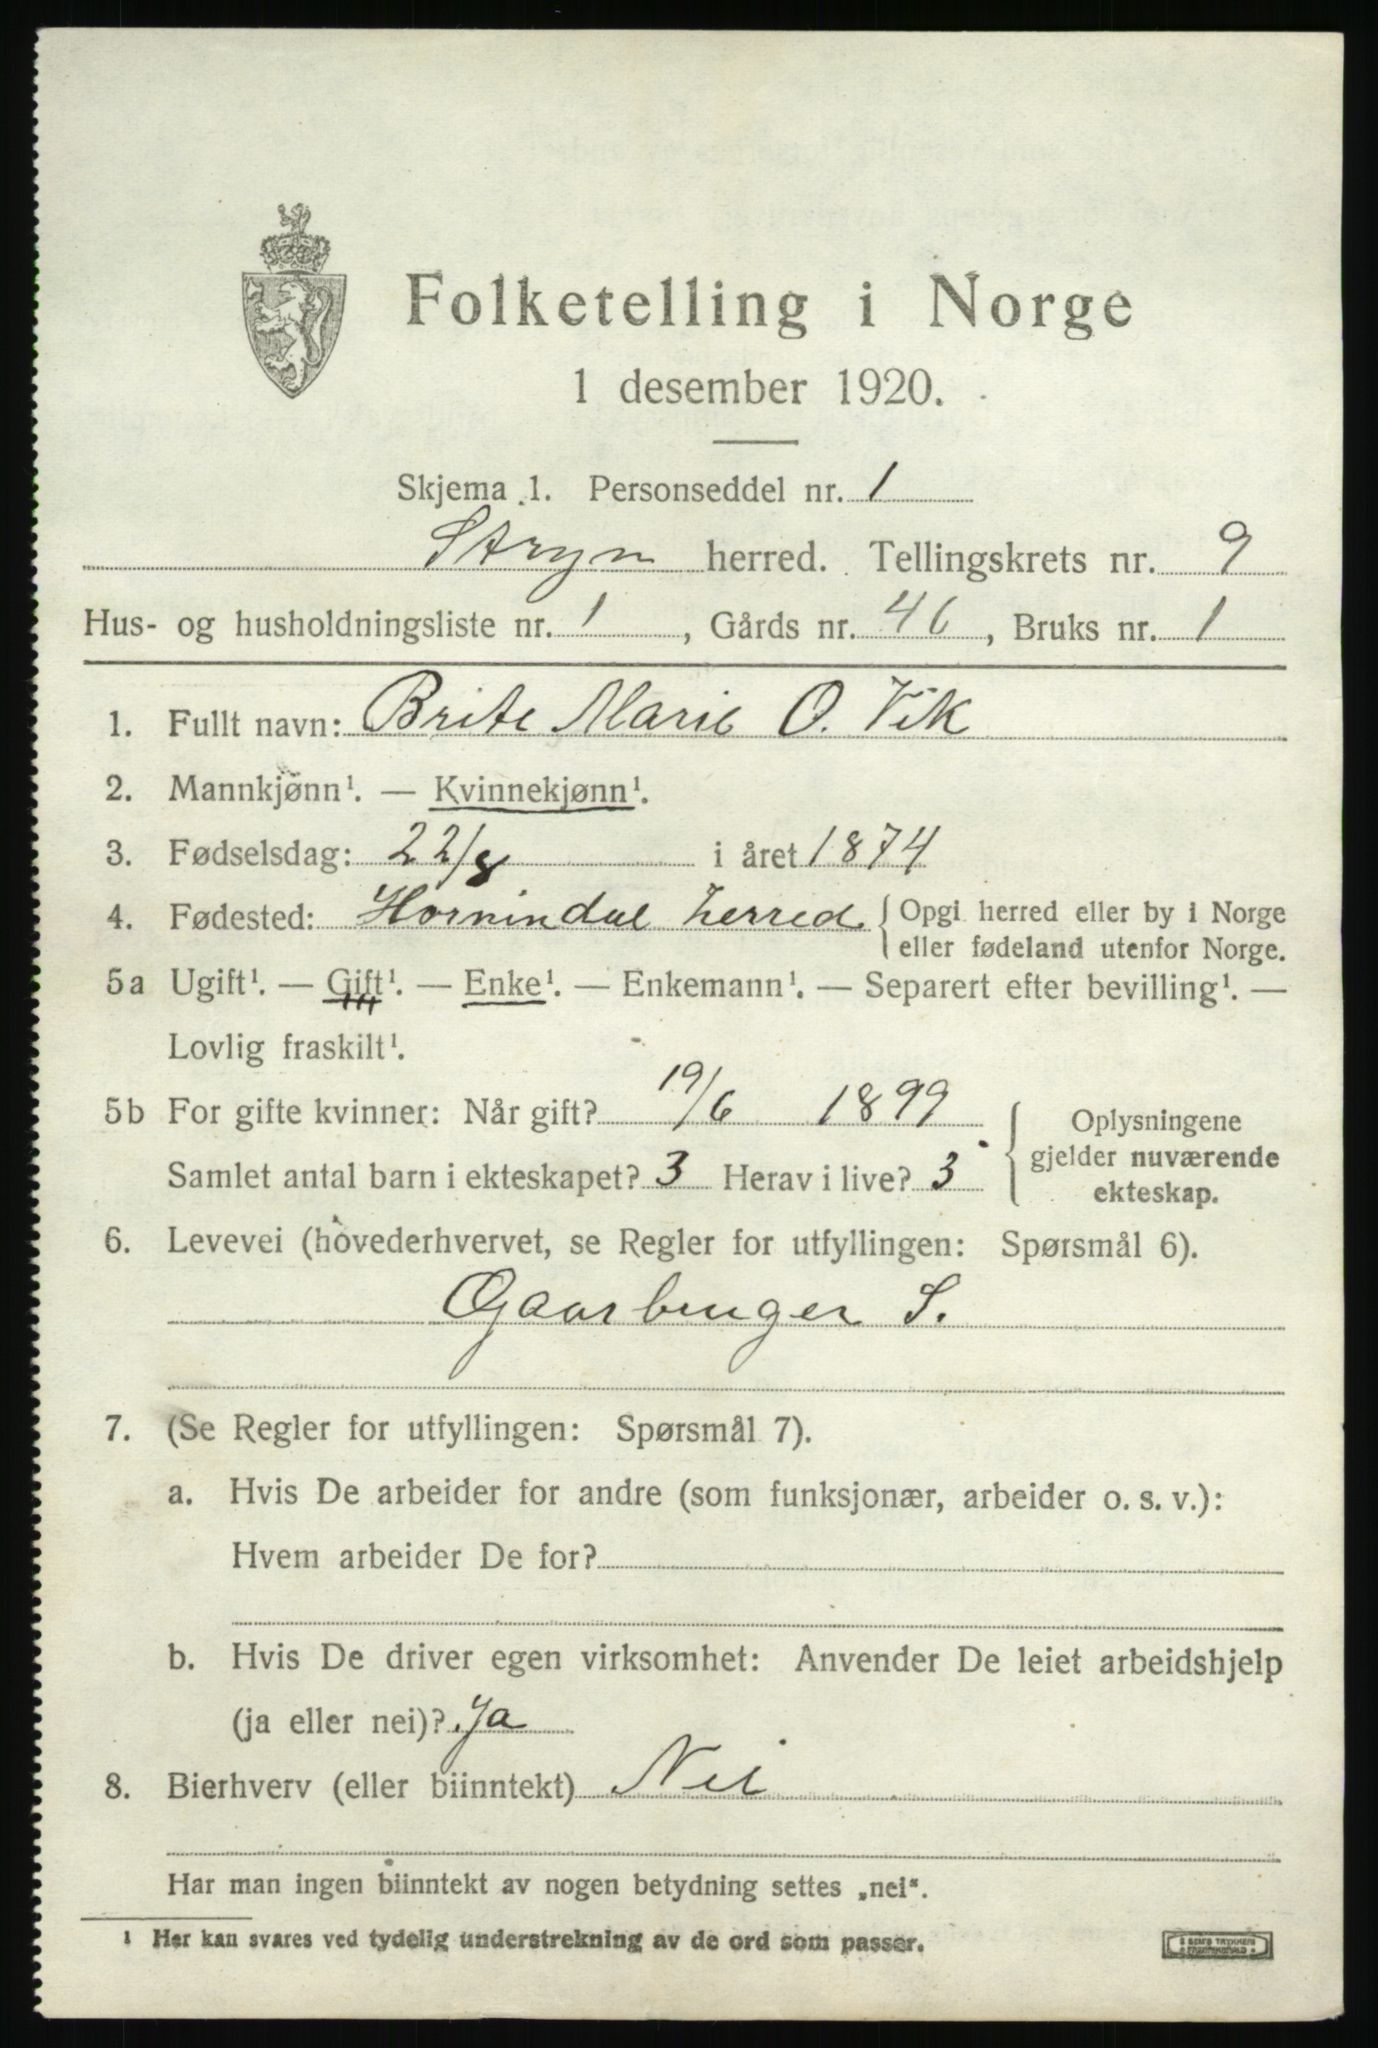 Folketelling i Norge
1 desember 1920.
Skjema 1. Personseddel nr. 1
Stryn herred. Tellingskrets nr. 9
Hus- og husholdningsliste nr. 1, Gårds nr. 46, Bruks nr. 1
1. Fullt navn: Brite Marie O. Vik
2. Mannkjønn¹. — Kvinnekjønn¹.
3. Fødselsdag: 22/8 i året 1874
4. Fødested: Hornindal herred { Opgi herred eller by i Norge
eller fødeland utenfor Norge.
5a Ugift¹. — Gift¹. — Enke¹. — Enkemann¹. — Separert efter bevilling¹. —
Lovlig fraskilt¹.
5b For gifte kvinner: Når gift? 19/6 1899
Samlet antal barn i ekteskapet? 3 Herav i live? 3
{ Oplysningene
gjelder nuværende
ekteskap.
6. Levevei (hovederhvervet, se Regler for utfyllingen: Spørsmål 6).
Gaarbruger S.
7. (Se Regler for utfyllingen: Spørsmål 7).
a. Hvis De arbeider for andre (som funksjonær, arbeider o. s. v.):
Hvem arbeider De for?
b. Hvis De driver egen virksomhet: Anvender De leiet arbeidshjelp
(ja eller nei)? Ja
8. Bierhverv (eller biinntekt) Nei
Har man ingen biinntekt av nogen betydning settes „nei“.
¹ Her kan svares ved tydelig understrekning av de ord som passer.